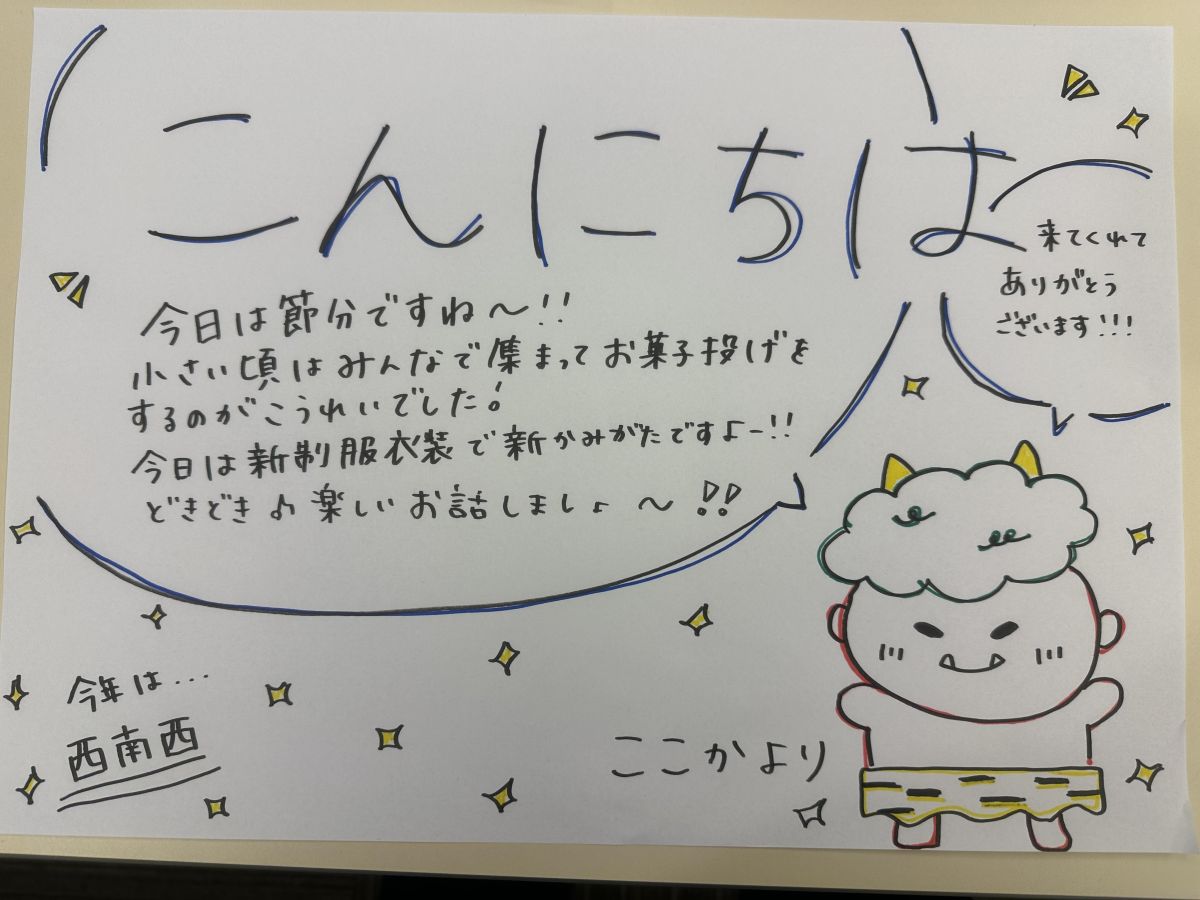 こんにちは
来てくれて
ありがとう
ございます!!!
今日は節分ですね～!!
小さい頃はみんなで集まってお菓子投げを
するのがこうれいでした!
今日は新制服衣装で新かみがたですよー!!
どきどき♪楽しいお話しましょ～!!
今年は...
西南西
ここかより